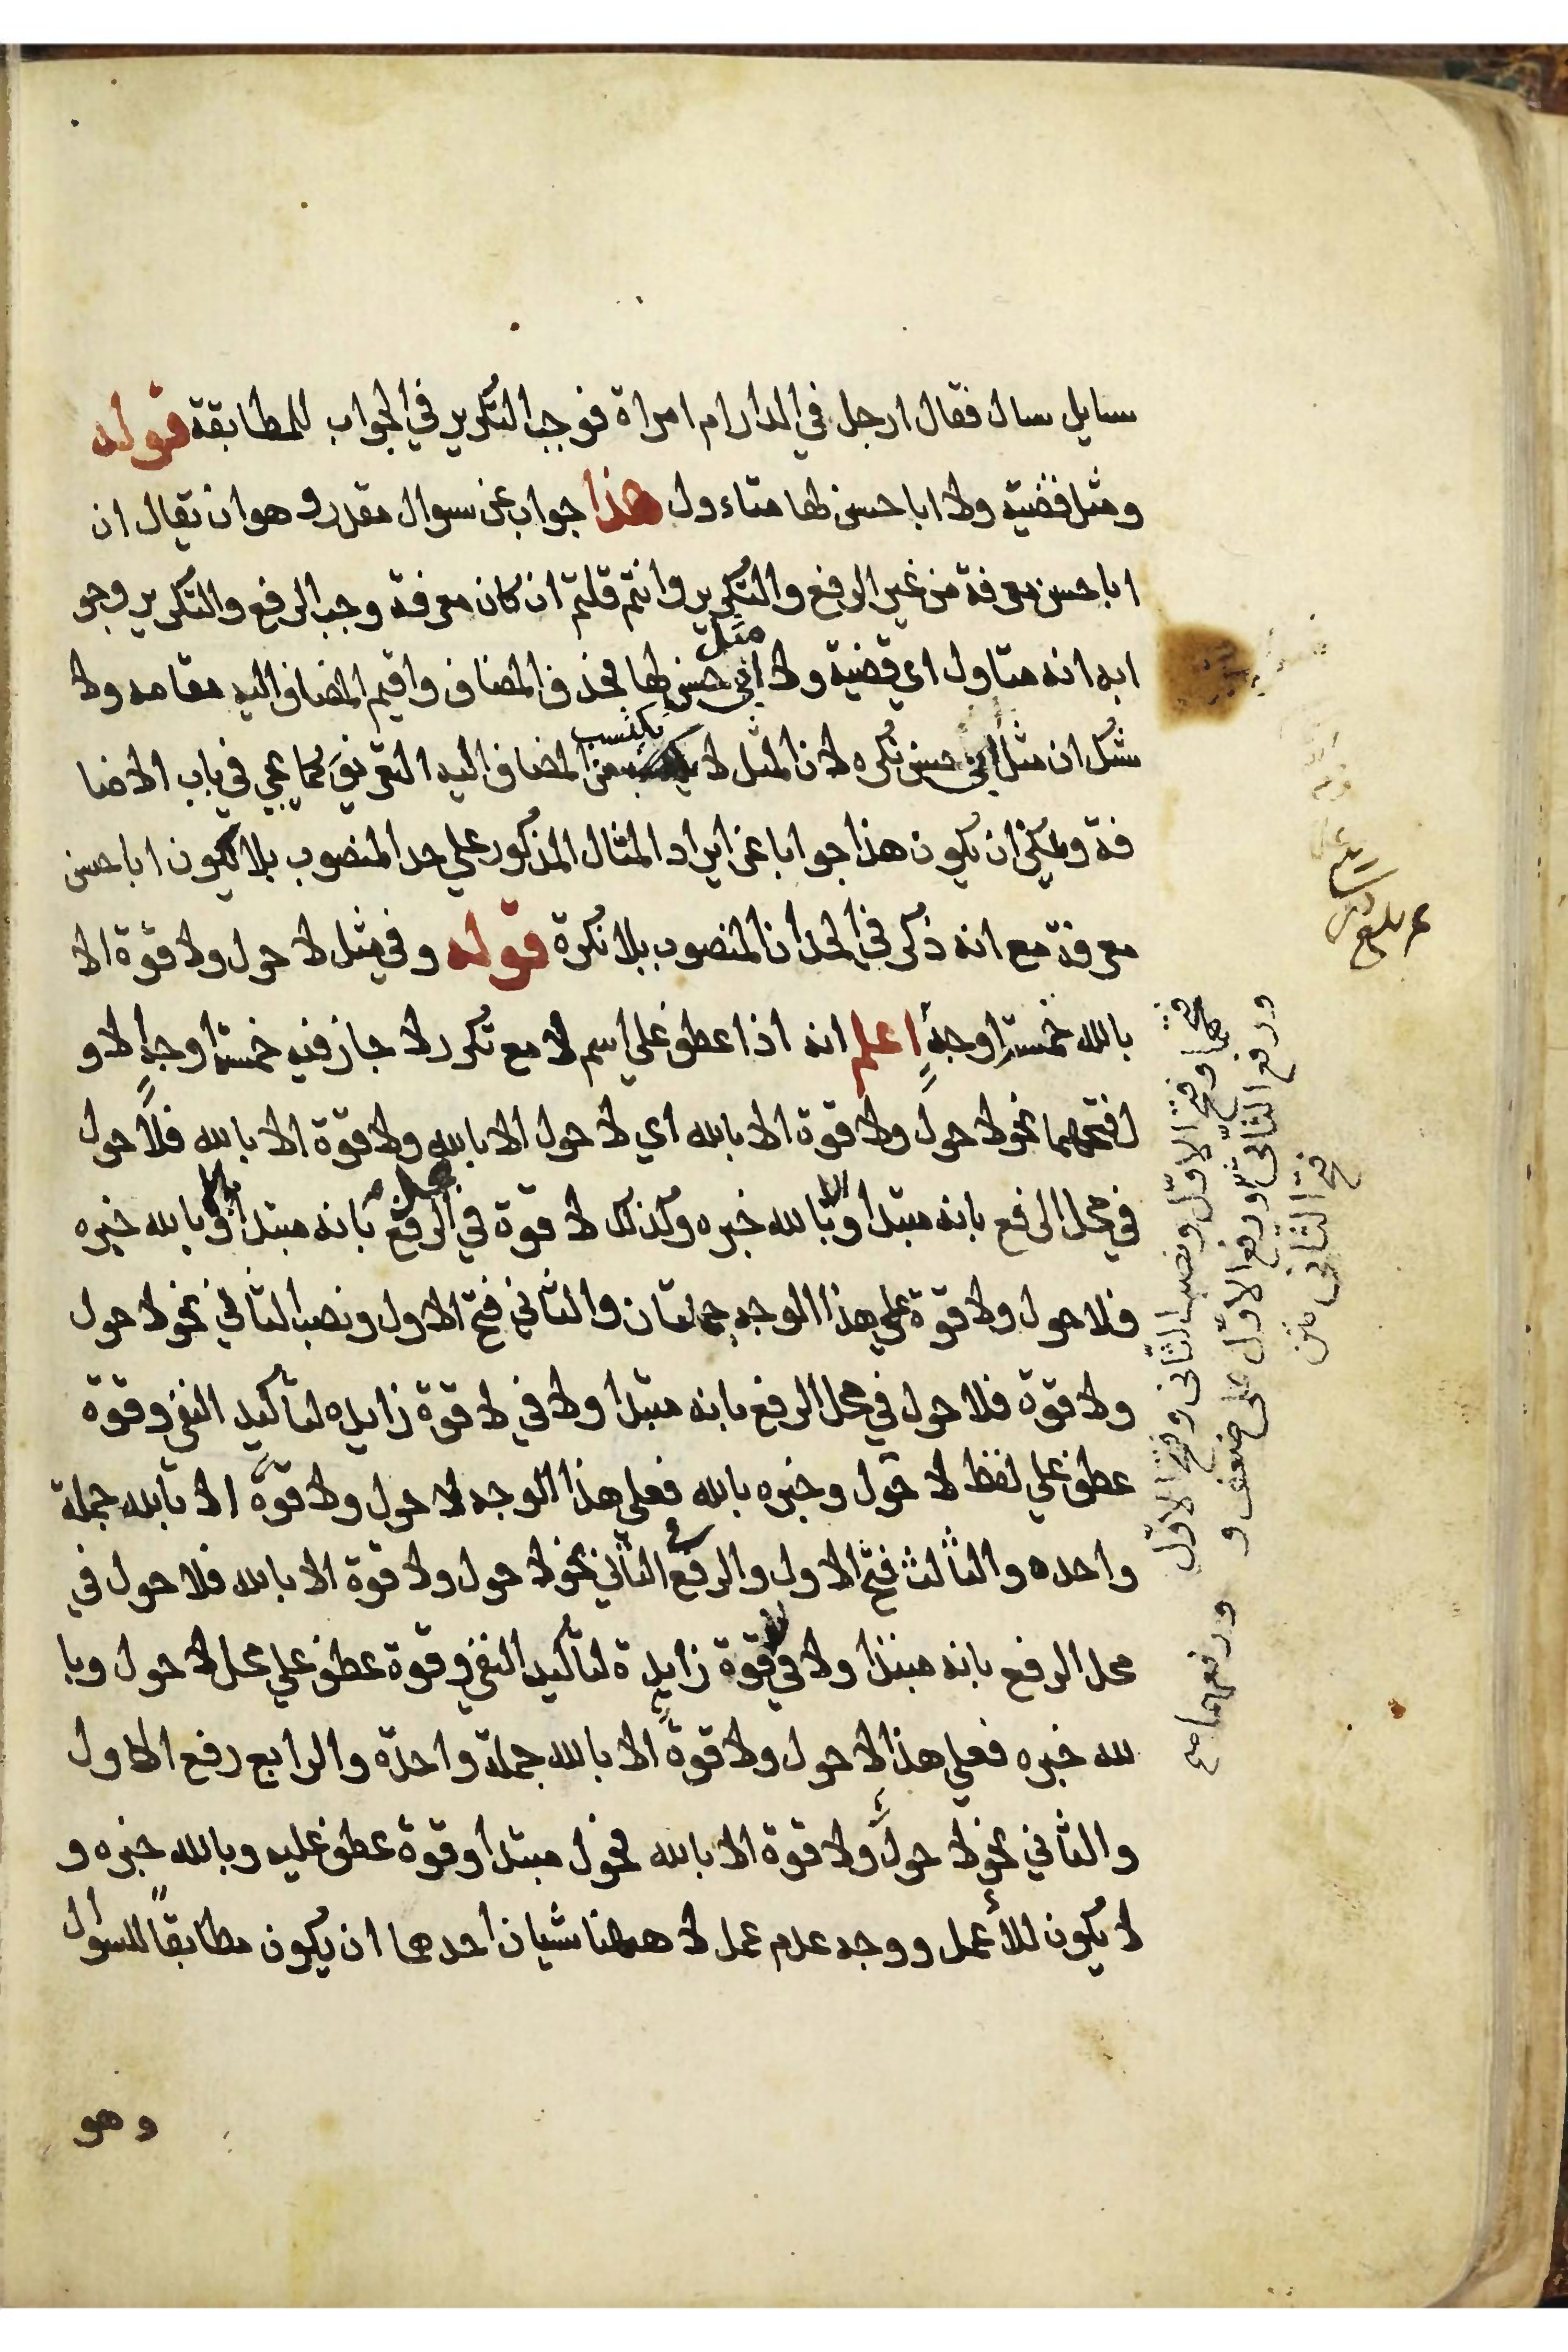 سايل سال فقال ارجل في الدار ام امراة فوجب التكرير في الجواب للمطابقة قوله
ومثل قضية ولا ابا حسن لها متاءول هذا جواب عن سوال مقدر وهو ان يقال ان
ابا حسن معرفة من غير الرفع والتكرير وانتم قلتم ان كان معرفة وجب الرفع والتكرير وجو
ابه انه متاول اي قضية ولا مثل ابي حسن لها فحذف المضاف واقيم المضاف اليه مقامه ولا
شك ان مثل ابي حسن نكره لان المثل لا يكتسب من المضاف اليه التعريف كما يجي في باب الاضا
فة ويمكن ان يكون هذا جوابا عن ايراد المثال المذكور علي حد المنصوب بلا لكون ابا حسن
معرفة مع انه ذكر في الحد ان المنصوب بلا نكرة قوله وفي مثل لا حول ولا قوة الا
بالله خمسة اوجهٍ اعلم انه اذا عطف علي اسم لا مع تكرر لا جاز فيه خمسة اوجهٍ الاو
ل فتحهما نحو لا حول ولا قوة الا بالله اي لا حول الا بالله ولا قوة الا بالله فلا حول
في محل الرفع بانه مبتدا وبالله خبره وكذلك لا قوة في محل الرفع بانه مبتدا وبالله خبره
فلا حول ولا قوة علي هذا الوجه جملتان والثاني فتح الاول ونصب الثاني نحو لا حول
ولا قوة فلا حول في محل الرفع بانه مبتدا ولا في لا قوة زايده لتأكيد النفي وقوة
عطف علي لفظ لا حول وخبره بالله فعلي هذا الوجه لا حول ولا قوةً الا بالله جملة
واحده والثالث فتح الاول والرفع في الثاني نحو لا حول ولا قوة الا بالله فلا حول في
محل الرفع بانه مبتدا ولا في لا قوة زايدة لتأكيد النفي وقوة عطف علي محل لا حول وبا
لله خبره فعلي هذا لا حول ولا قوة الا بالله جملة واحدة والرابع رفع الاول
والثاني نحو لا حول ولا قوة الا بالله فحول مبتدا وقوة عطف عليه وبالله خبره و
لا يكون للا عمل ووجه عدم عمل لا ههنا شيان احدها ان يكون مطابقاً للسوال
وهو
فتحهما وفتح الاوّل ونصب الثانى وفتح الاوّل
ورفع الثانى ورفع الاوّل على ضعف و
فتح الثانى متن
ورفعهما صح